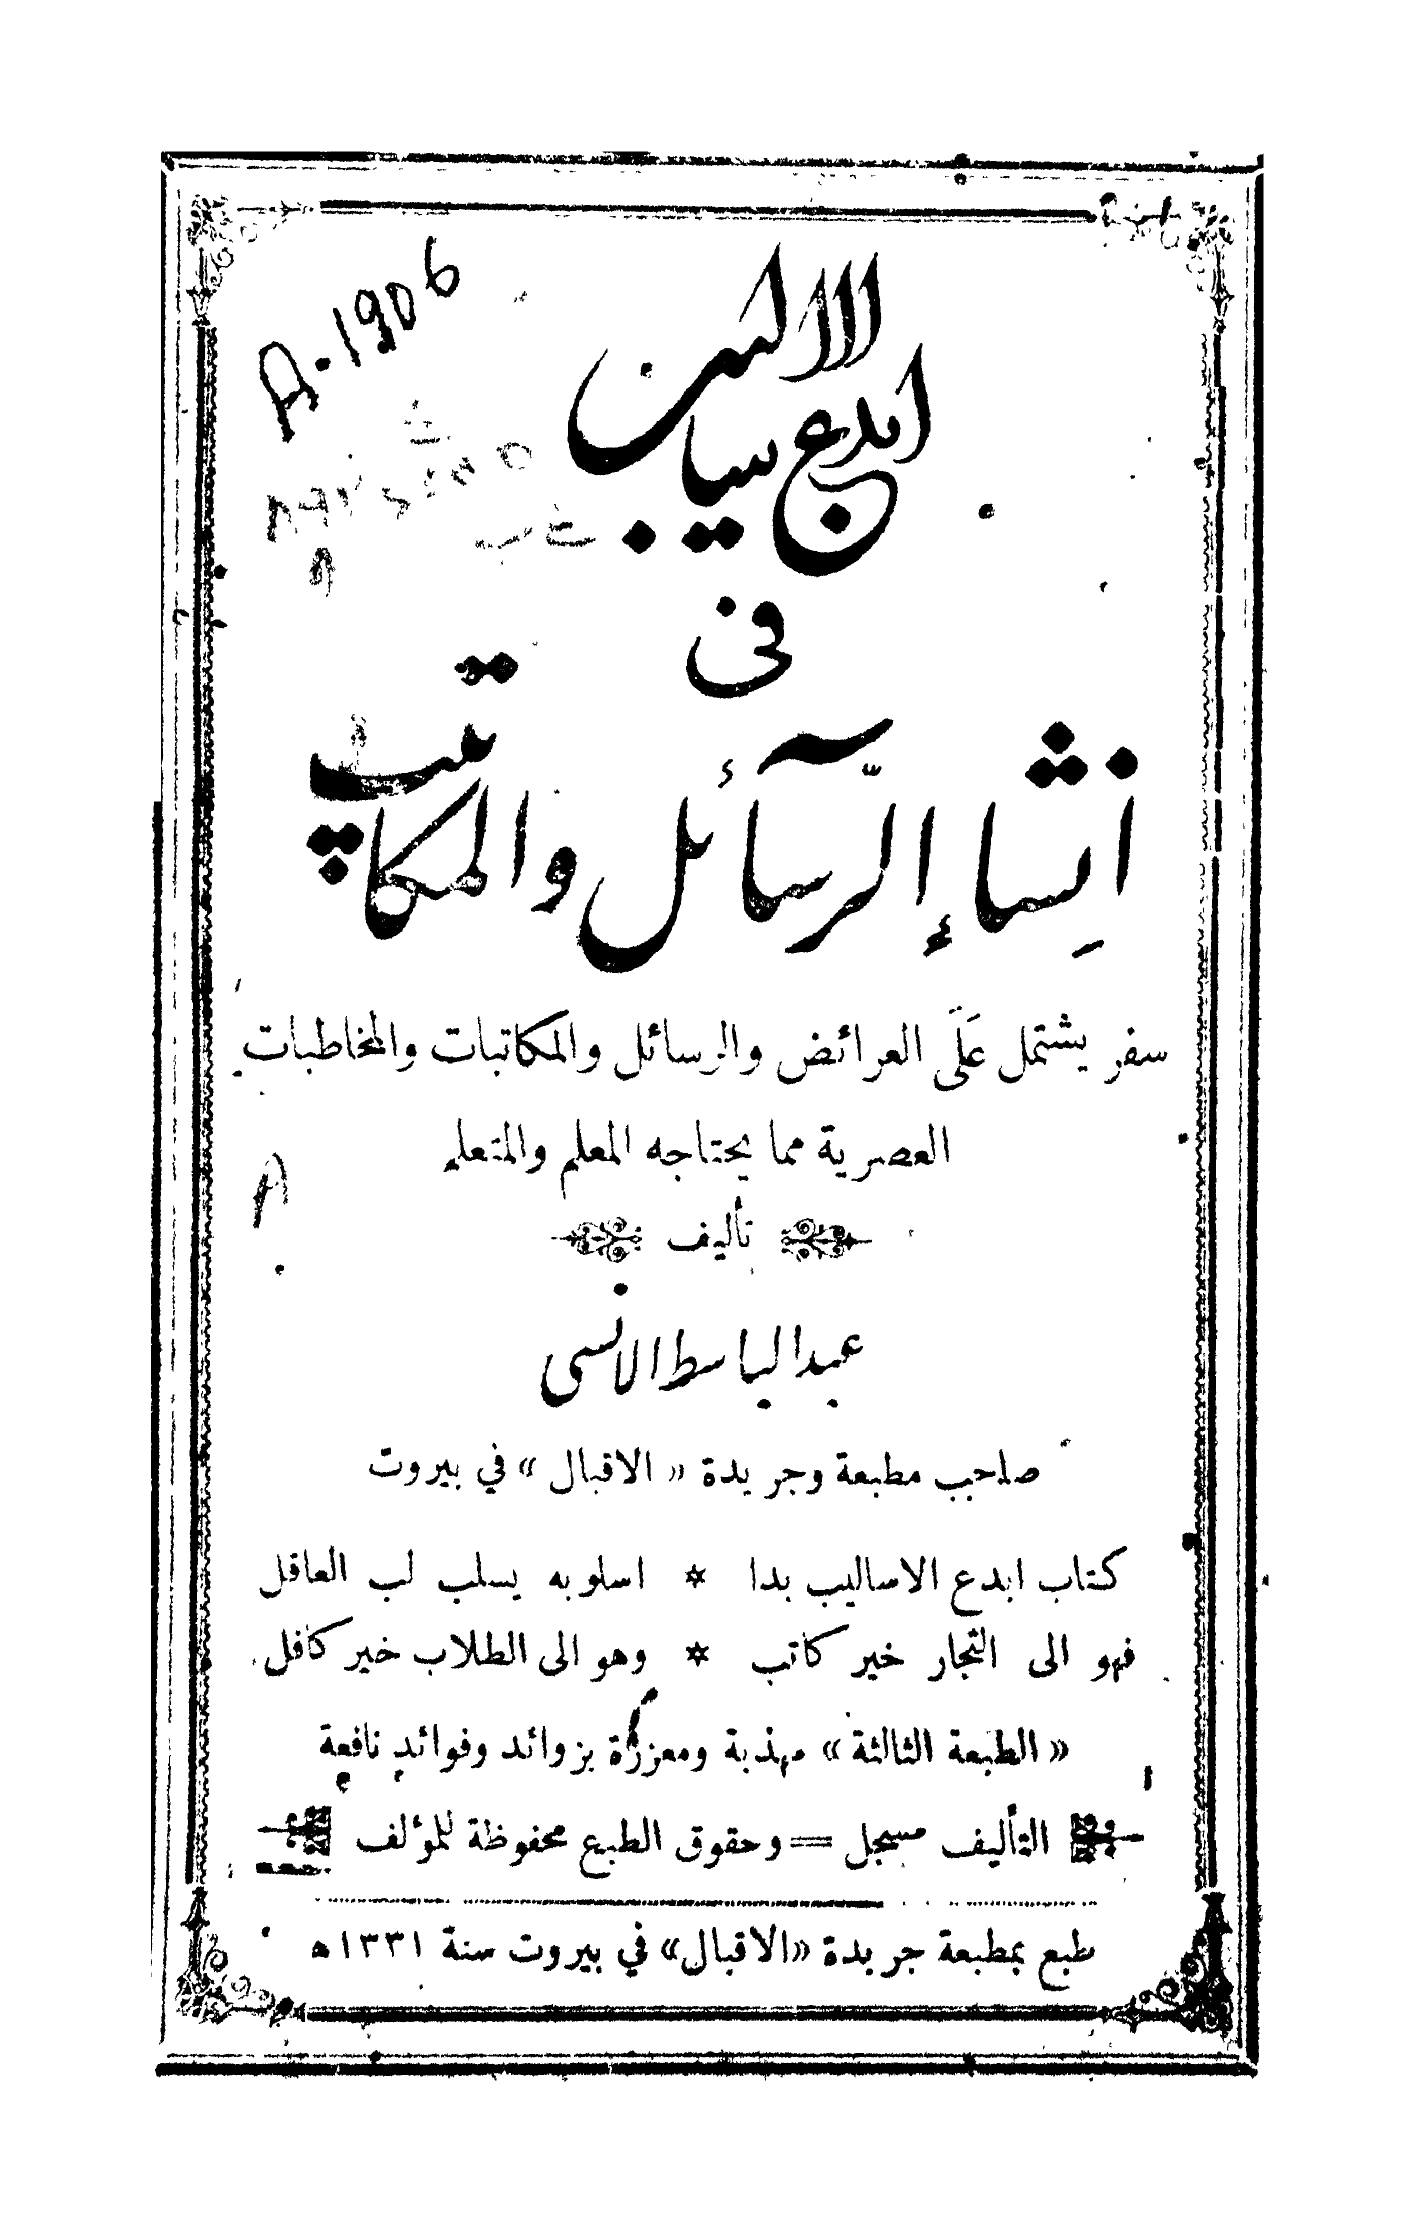 A.1906
ابدع الاساليب
في
انشاء الرسائل والمكاتيب
سفر يشتمل عَلَى العرائض والرسائل والمكاتبات والمخاطبات
العصرية مما يحتاجه المعلم والمتعلم
تأليف
عبد الباسط الانسى
صاحب مطبعة وجريدة « الاقبال » في بيروت
كتاب ابدع الاساليب بدا * اسلوبه يسلب لب العاقل
فهو الى التجار خير كاتب * وهو الى الطلاب خير كافل
« الطبعة الثالثة » مهذبة ومعززة بزوائد وفوائد نافعة
التأليف مسجل = وحقوق الطبع محفوظة للمؤلف
طبع بمطبعة جريدة «الاقبال» في بيروت سنة ١٣٣١ ه